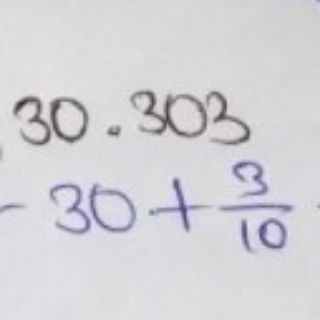 30.303
- 30 + 3/10